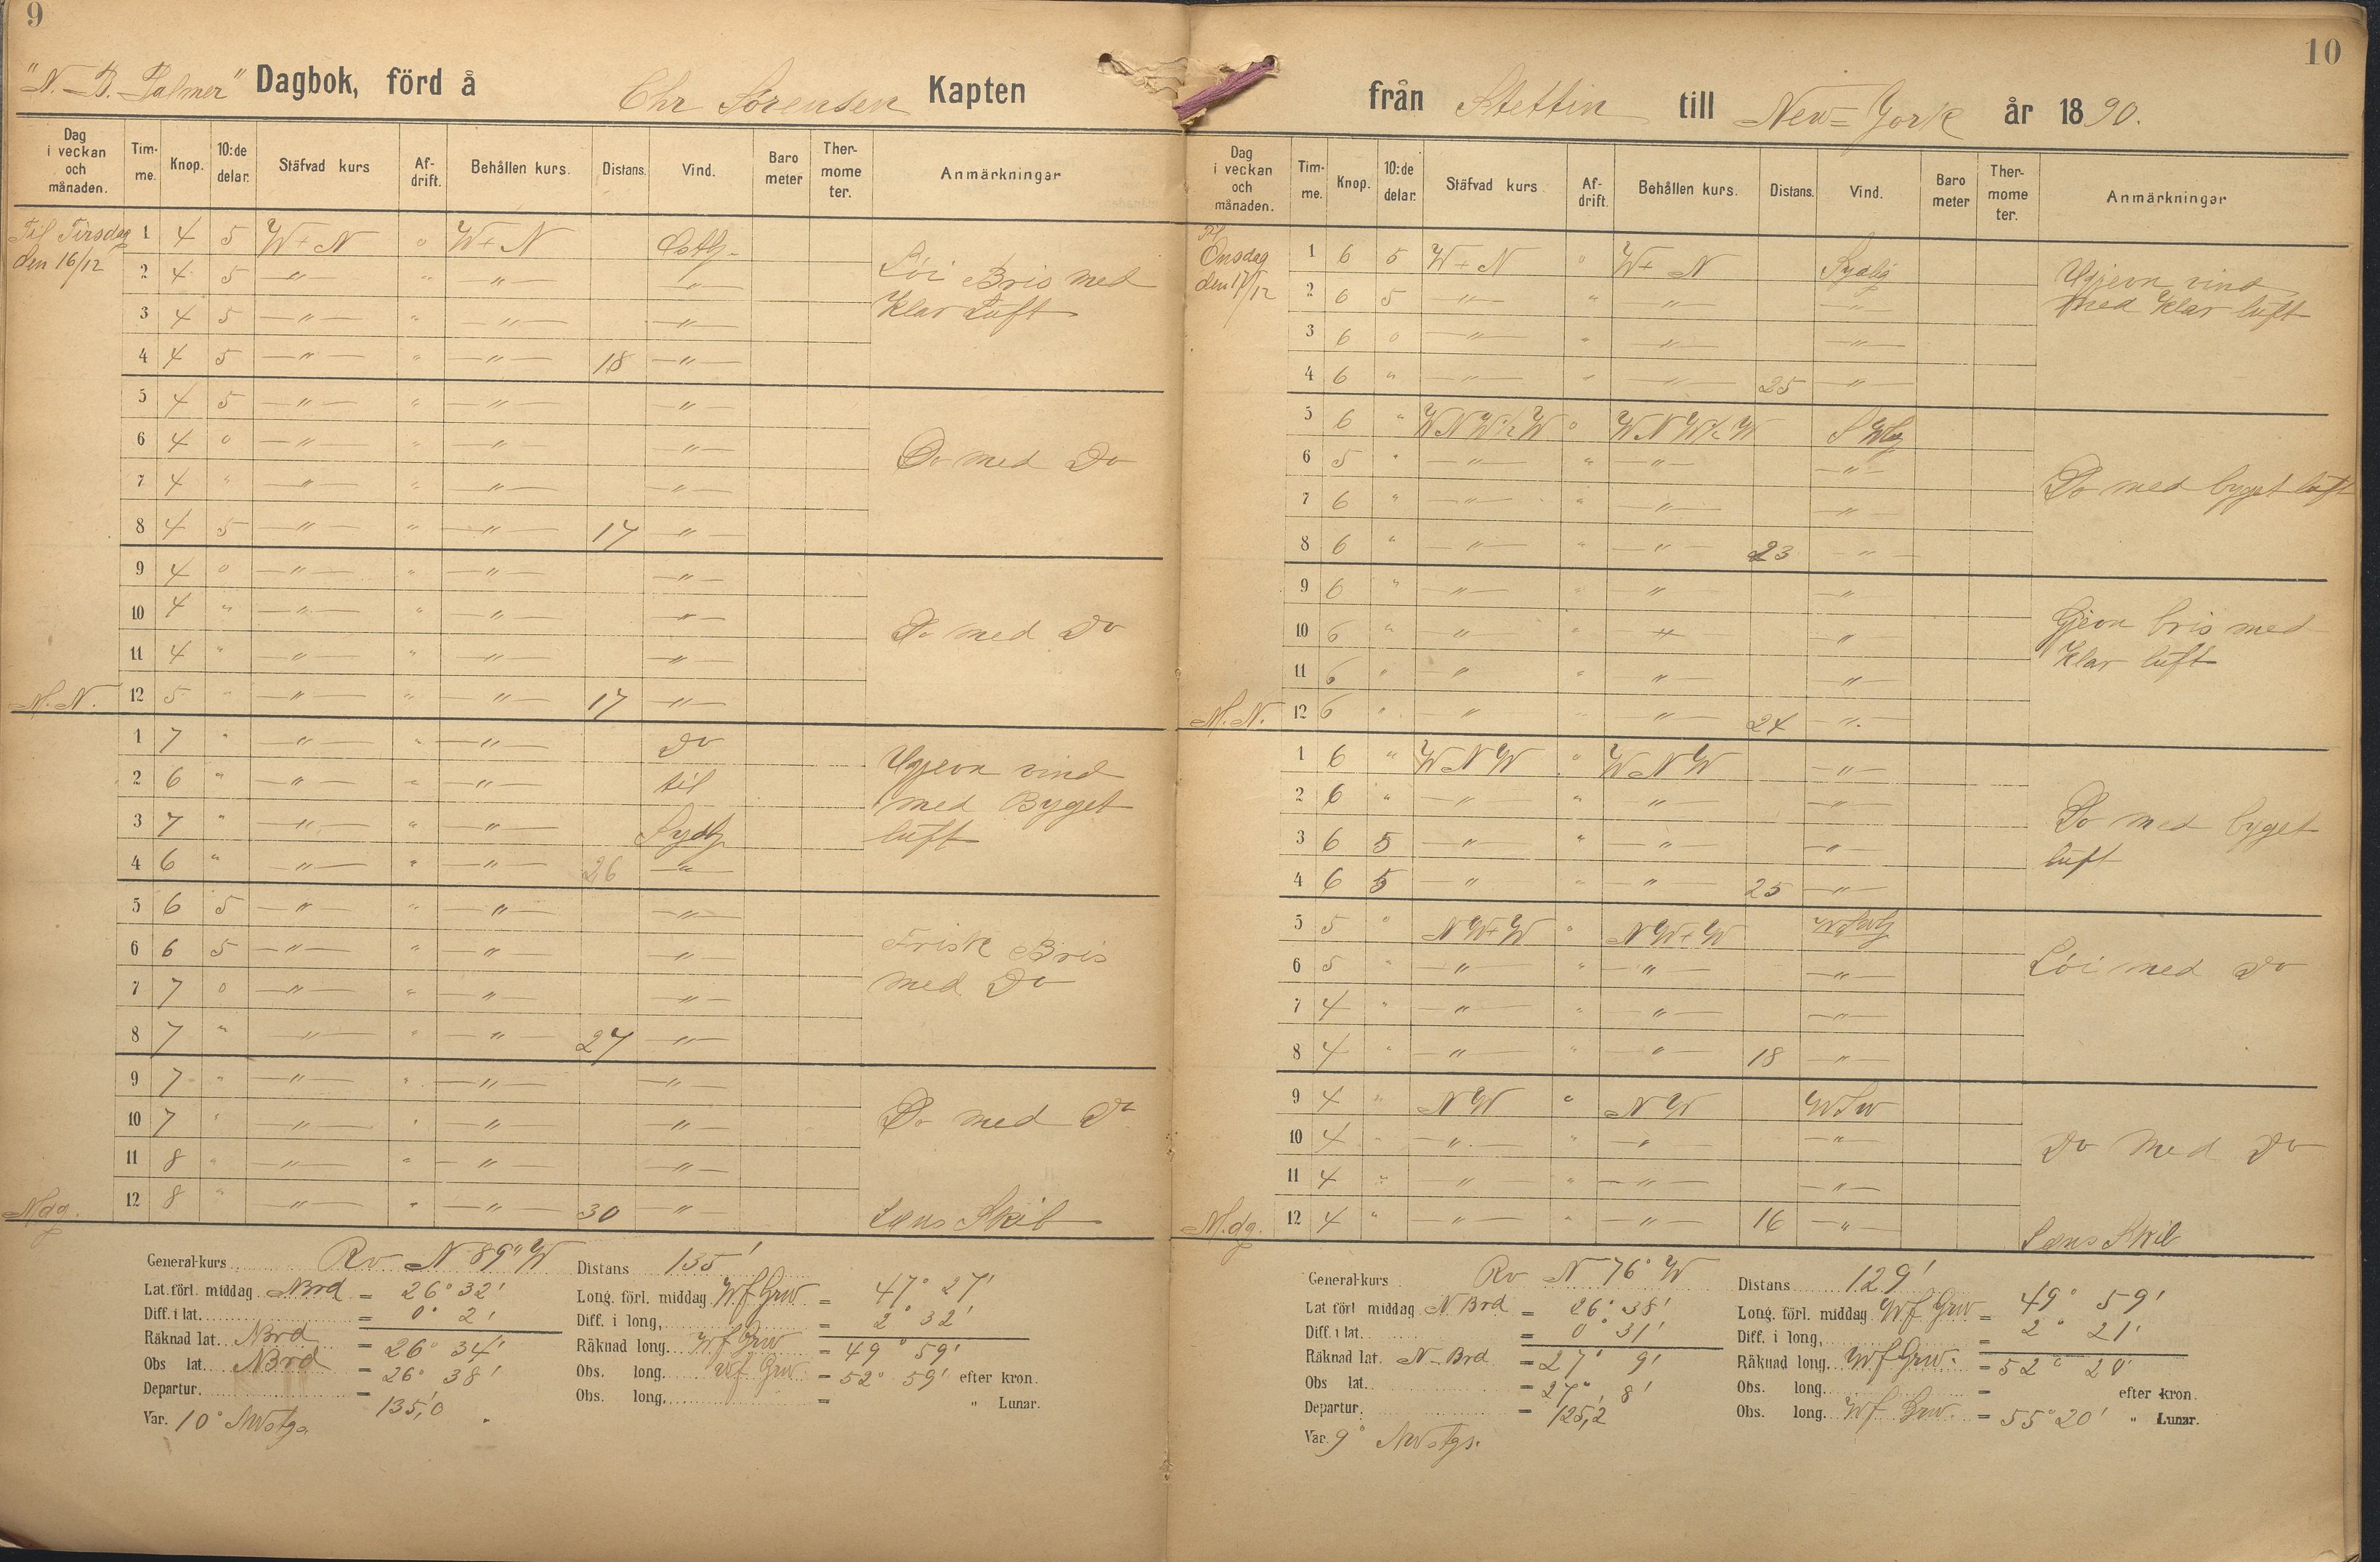 9
"N. B. Palmer" Dagbok, förd å Chr Sørensen Kapten
Dag i veckan och månaden. Tim-me. Knop. 10:de delar. Stäfvad kurs Af-drift. Behållen kurs. Distans. Vind. Baro meter Ther-mome ter. Anmärkningar
Til Tirsdag den 16/12
1 4 5 W+N 0 W+N Ostlg. Løi Bris med
2 4 5 — " — " — " — — " — Klar Luft
3 4 5 — " — " — " — — " —
4 4 5 — " — " — " — 18 — " —
5 4 5 — " — " — " — — " —
6 4 0 — " — " — " — — " — Do med Do
7 4 " — " — " — " — — " —
8 4 5 — " — " — " — 17 — " —
9 4 0 — " — " — " — — " —
10 4 " — " — " — " — — " — Do med Do
11 4 " — " — " — " — — " —
M.N. 12 5 " — " — " — " — 17 — " —
1 7 " — " — " — " — Do Ugjevn vind
2 6 " — " — " — " — til med Byget
3 7 " — " — " — " — Sydlg luft
4 6 " — " — " — " — 26 — " —
5 6 5 — " — " — " — — " —
6 6 5 — " — " — " — — " — Frisk Bris
7 7 0 — " — " — " — — " — med Do
8 7 " — " — " — " — 27 — " —
9 7 " — " — " — " — — " —
10 7 " — " — " — " — — " — Do med Do
11 8 " — " — " — " — — " —
Mdg. 12 8 " — " — " — " — 30 — " — Læns Skib
General-kurs Rv N 89° W Distans 135'
Lat. förl. middag NBrd = 26° 32' Long. förl. middag. Wf Grw = 47° 27'
Diff. i lat. = 0° 2' Diff. i long. = 2° 32'
Räknad lat. NBrd = 26° 34' Räknad long. Wf Grw = 49° 59'
Obs lat. NBrd = 26° 38' Obs. long. Wf Grw = 52° 59' efter kron.
Departur. = 135,0 Obs. long. = " Lunar.
Var. 10° NWstgs.
10
från Stettin till New-York år 1890.
Dag i veckan och månaden. Tim-me. Knop. 10:de delar. Stäfvad kurs Af-drift. Behållen kurs. Distans. Vind. Baro meter Ther-mome ter. Anmärkningar
Til Onsdag den 17/12
1 6 5 W+N 0 W+N Sydlig Ugjevn vind
2 6 5 — " — " — " — — " — med Klar luft
3 6 0 — " — " — " — — " —
4 6 " — " — " — " — 25 — " —
5 6 " WNW½W 0 WNW½W SWlg
6 5 " — " — " — " — — " — Do med byget luft
7 6 " — " — " — " — — " —
8 6 " — " — " — " — 23 — " —
9 6 " — " — " — " — — " —
10 6 " — " — " — " — — " — Gjevn bris med
11 6 " — " — " — " — — " — Klar luft
M.N. 12 6 " — " — " — " — 24 — " —
1 6 " WNW " WNW — " —
2 6 " — " — " — " — — " — Do med byget
3 6 5 — " — " — " — — " — luft
4 6 5 — " — " — " — 25 — " —
5 5 0 NW+W 0 NW+W WSWlg
6 5 " — " — " — " — — " — Løi med Do
7 4 " — " — " — " — — " —
8 4 " — " — " — " — 18 — " —
9 4 " NW " NW WSW
10 4 " — " — " — " — — " — Do med Do
11 4 " — " — " — " — — " —
M.dg. 12 4 " — " — " — " — 16 — " — Læns Skib
General-kurs Rv N 76° W Distans 129'
Lat förl middag N Brd = 26° 38' Long. förl. middag Wf Grw = 49° 59'
Diff. i lat. = 0° 31' Diff. i long. = 2° 21'
Räknad lat. N-Brd = 27° 9' Räknad long. Wf Grw. = 52° 20'
Obs lat. = 27° 8' Obs. long. = efter kron.
Departur. = 125,2 Obs. long. Wf Grw. = 55° 20' " Lunar.
Var. 9° NWstgs.